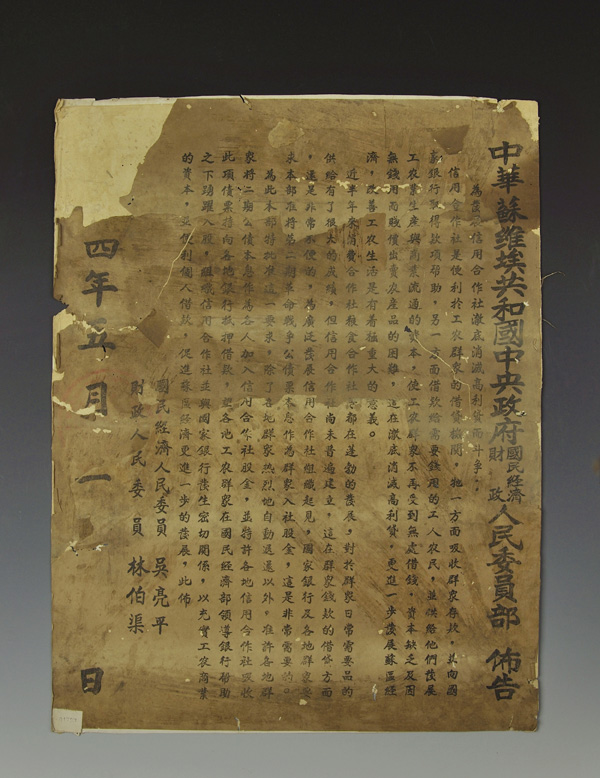 中華蘇維埃共和國中央政府國民經濟財政人民委員部 佈告
為發展信用合作社澈底消滅高利貸而斗爭
信用合作社是便利於工农群眾的借貸機関，牠一方面吸收群眾存款，其向國
家銀行取得款項帮助，另一方面借款給需要錢用的工人农民，並供給他們發展
工农業生産與商業流通的資本，使工农群眾不再受到無處借錢，資本缺乏及因
無錢用而賤價出賣农産品的困難，這在澈底消滅高利貸，更進一步發展蘇區經
濟，改善工农生活是有着極重大的意義。
近半年來消費合作社粮食合作社 都在蓬勃的發展，對於群眾日常需要品的
供給有了很大的成績，但信用合作社尚未普遍建立，這在群眾錢款的借貸方面
，還是非常不便的，為廣泛發展信用合作社組織起見，國家銀行及各地群眾要
求本部准將第二期革命戰爭公債票本息作為群眾入社股金，這是非常需要的。
為此本部特批准這一要求，除了各地群眾热烈地自動退還以外，准許各地群
眾將二期公債本息作為各人加入信用合作社股金，並特許各地信用合作社吸收
此項債票轉向各地銀行抵押借款，望各地工农群眾在國民經濟部領導銀行帮助
之下踴躍入股，組織信用合作社並與國家銀行發生密切関係，以充實工农商業
的資本，並便利個人借款，促進蘇區經濟更進一步的發展，此佈
國民經濟人民委員 吳亮平
財政人民委員 林伯渠
四年五月一日